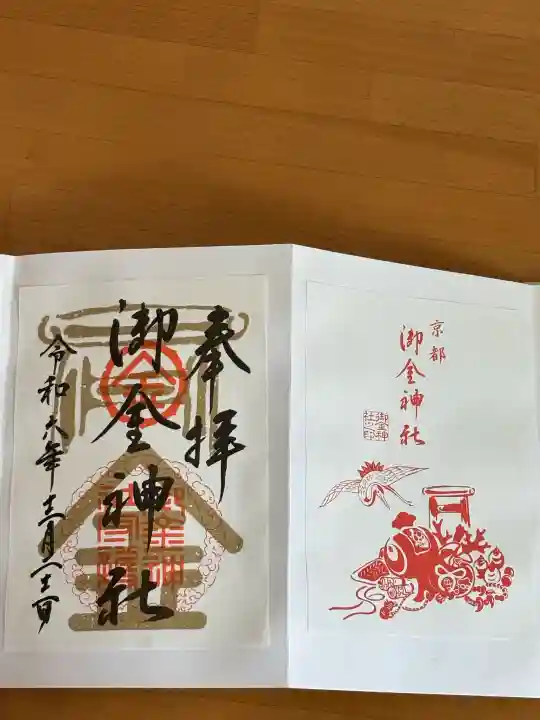 奉拝
御金神社
令和六年十二月二十二日
金
京都
御金神社
御金神
社之印